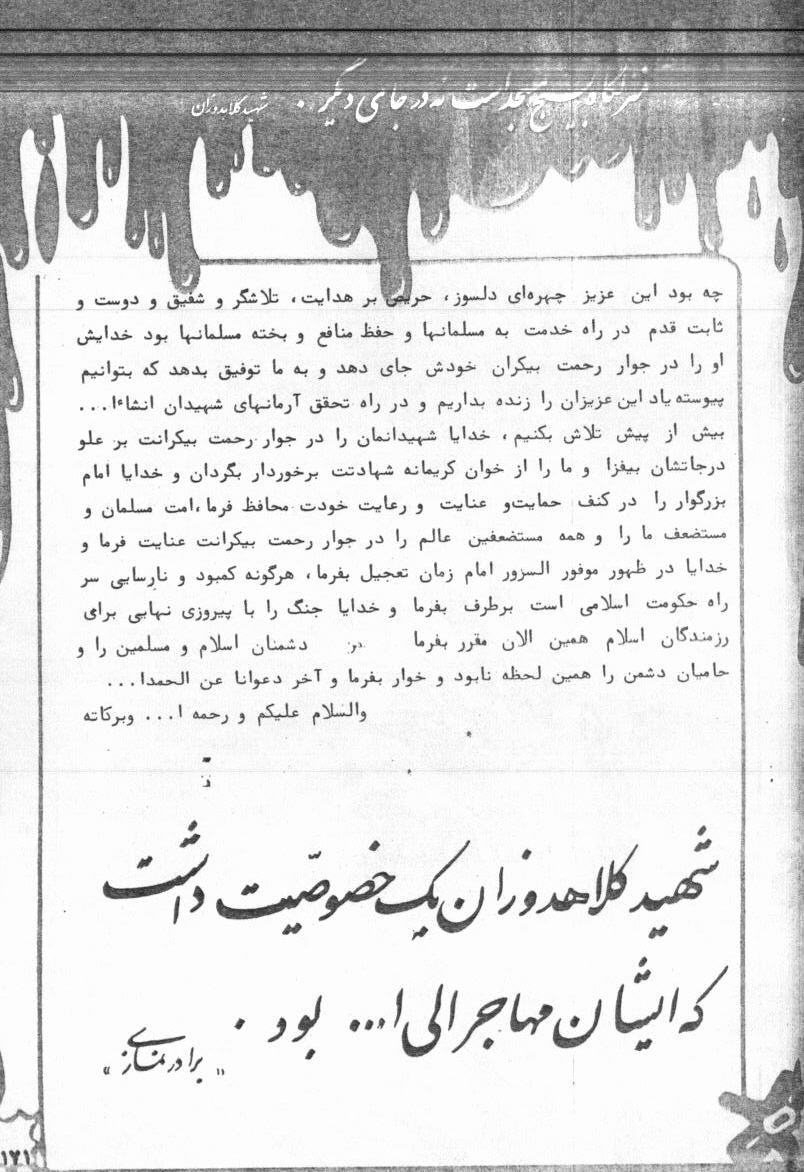 مسجد است نه در جای دیگر . شهید کلاهدوزان
چه بود این عزیز چهره‌ای دلسوز، حریص بر هدایت، تلاشگر و شفیق و دوست و
ثابت قدم در راه خدمت به مسلمانها و حفظ منافع و بخته مسلمانها بود خدایش
او را در جوار رحمت بیکران خودش جای دهد و به ما توفیق بدهد که بتوانیم
پیوسته یاد این عزیزان را زنده بداریم و در راه تحقق آرمانهای شهیدان انشاءا...
بیش از پیش تلاش بکنیم، خدایا شهیدانمان را در جوار رحمت بیکرانت بر علو
درجاتشان بیفزا و ما را از خوان کریمانه شهادتت برخوردار بگردان و خدایا امام
بزرگوار را در کنف حمایت‌و عنایت و رعایت خودت محافظ فرما،امت مسلمان و
مستضعف ما را و همه مستضعفین عالم را در جوار رحمت بیکرانت عنایت فرما و
خدایا در ظهور موفور السزور امام زمان تعجیل بفرما، هرگونه کمبود و نارسایی سر
راه حکومت اسلامی است برطرف بفرما و خدایا جنگ را با پیروزی نهایی برای
رزمندگان اسلام همین الان مقرر بفرما دشمنان اسلام و مسلمین را و
حامیان دشمن را همین لحظه نابود و خوار بفرما و آخر دعوانا عن الحمدا...
والسلام علیکم و رحمه ا... وبرکاته
شهید کلاهدوزان یک خصوصیّت داشت
که ایشان مهاجر الی ا... بود .
« برادر نمازی »
۱۷۱